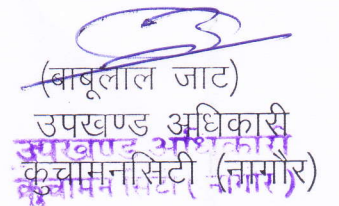 (बाबूलाल जाट)
उपखण्ड अधिकारी
उपखण्ड अधिकारी
कुचामनसिटी (नागौर)
कुचामनसिटी (नागौर)